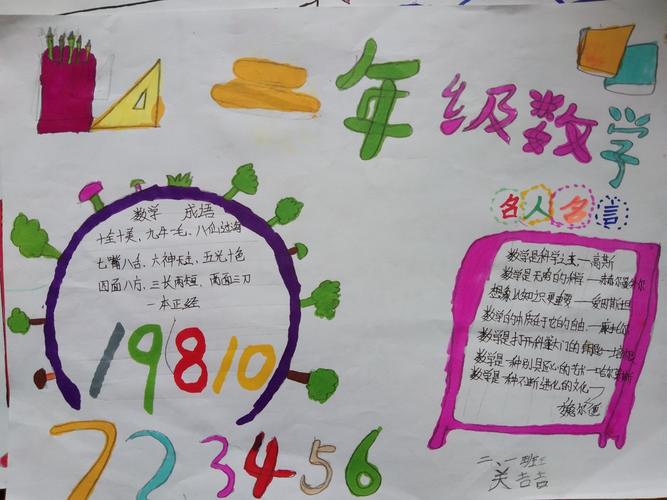 二年级数学
数学 成语
十全十美、九牛一毛、八仙过海
七嘴八舌、六神无主、五光十色
四面八方、三长两短、两面三刀
一本正经
19810
723456
名人名言
数学是科学之王—高斯
数学是无穷的科学—赫尔曼外尔
想象比知识更重要—爱因斯坦
数学的本质在于它的自由—康托尔
数学是打开科学大门的钥匙—培根
数学是一种别具匠心的艺术—哈尔莫斯
数学是一种不断进化的文化—
魏尔德
二、一班
关喆